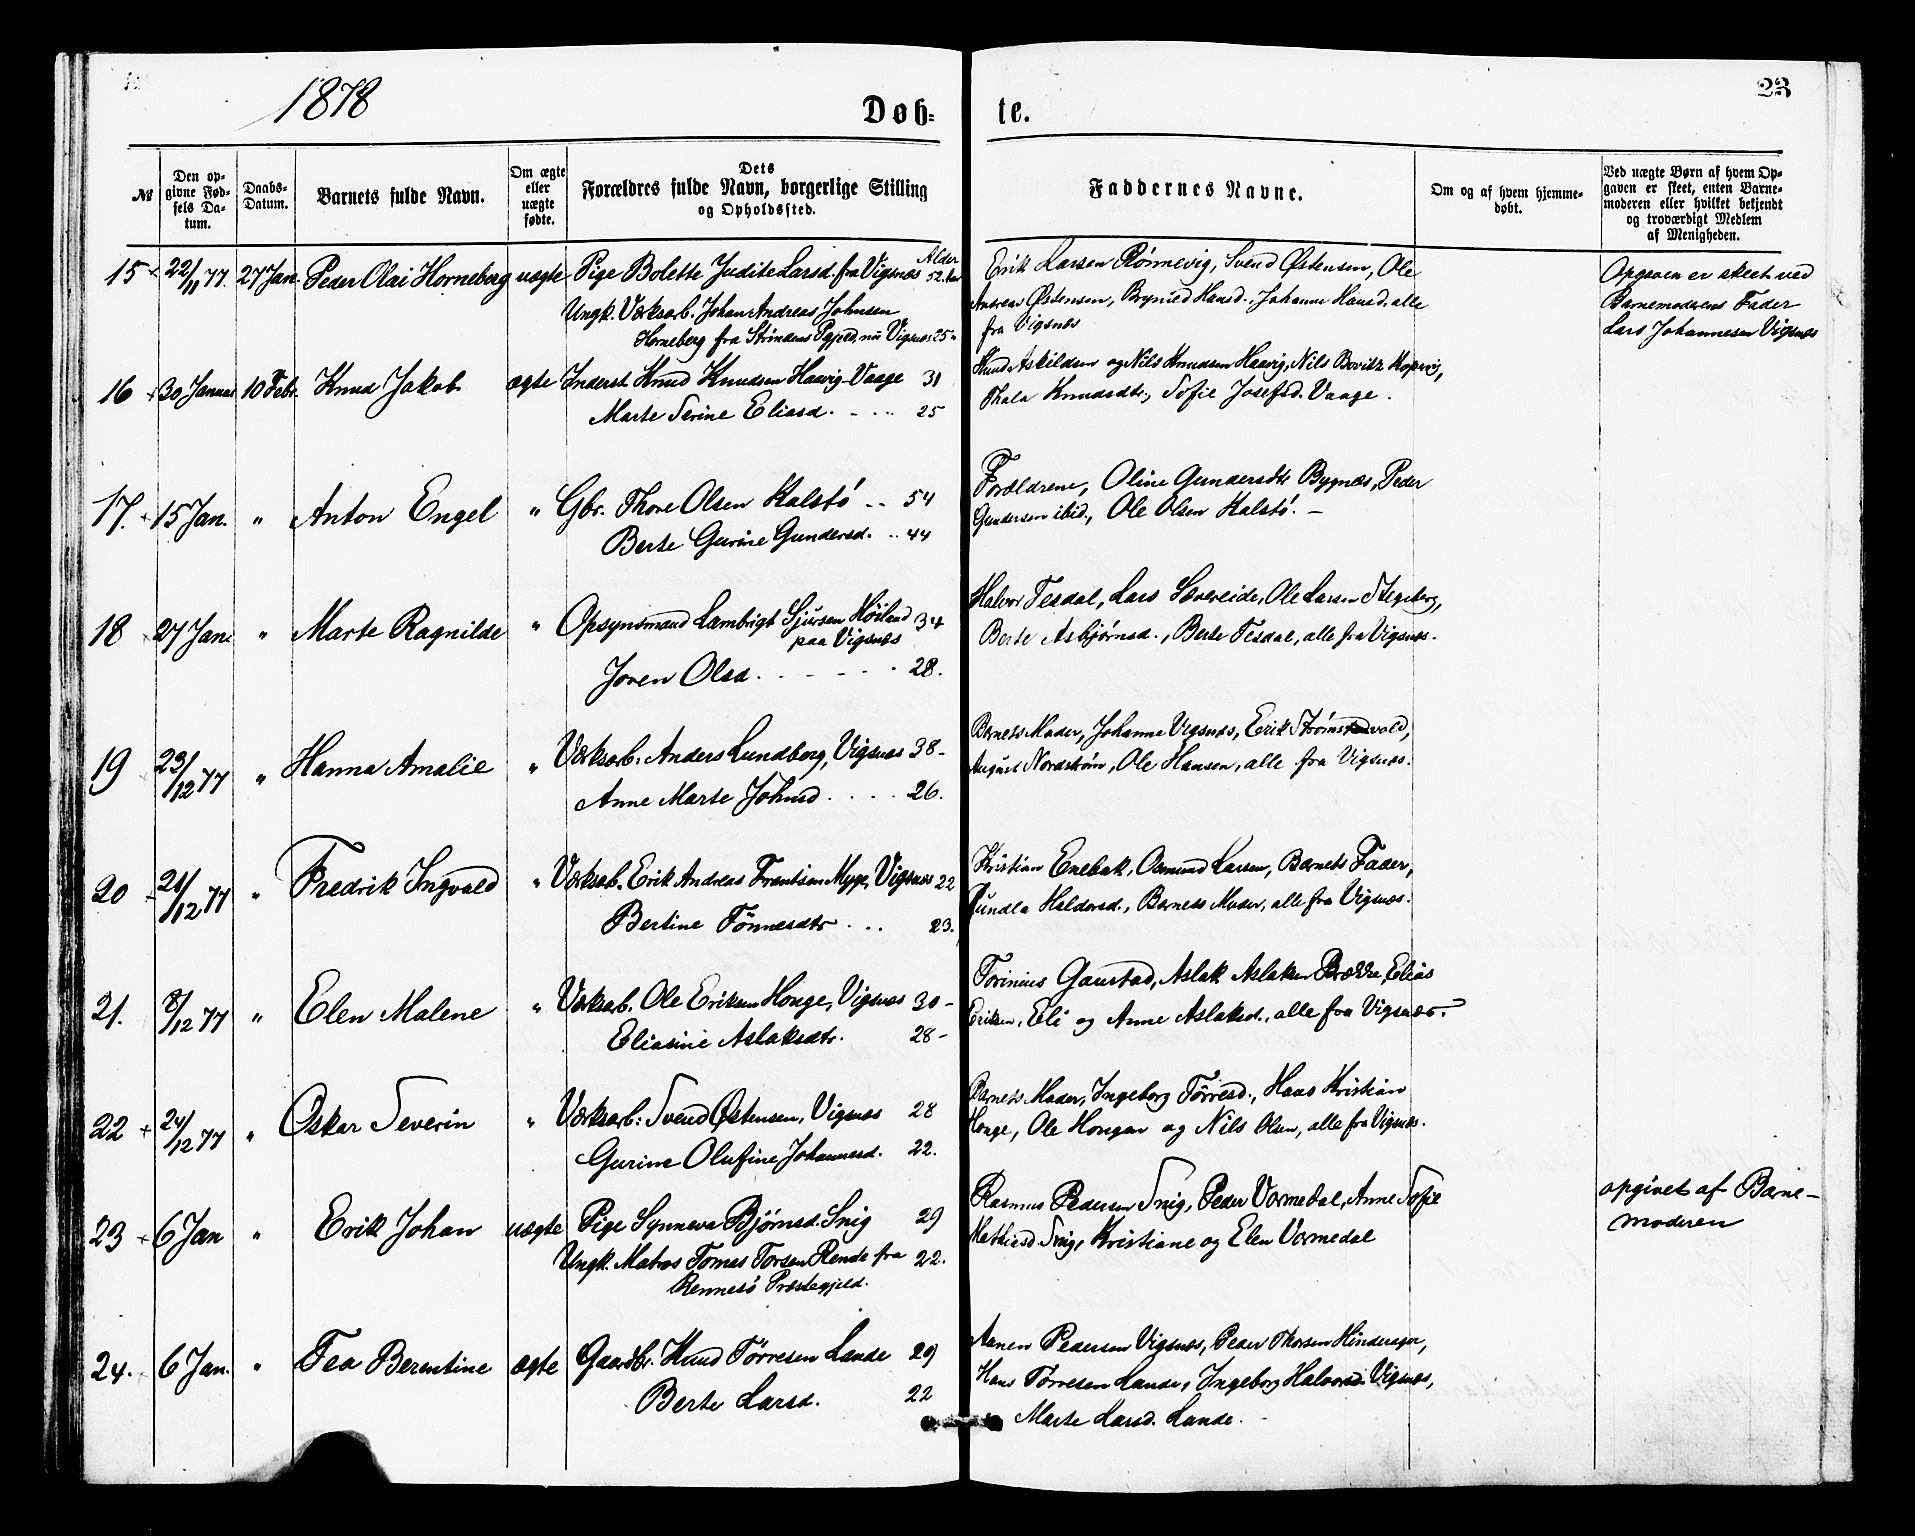 1878 Døb= te. 23
№
Den op-
givne Fød-
sels Da-
tum.
Daabs-
Datum.
Barnets fulde Navn.
Om ægte
eller
uægte
fødte.
Dets
Forældres fulde Navn, borgerlige Stilling
og Opholdssted.
Faddernes Navne.
Om og af hvem hjemme-
døbt.
Ved uægte Børn af hvem Op-
gaven er skeet, enten Barne-
moderen eller hvilket bekjendt
og troværdigt Medlem
af Menigheden.
Alder
15 22/11 77. 27 Jan. Peder Olai Horneberg uægte Pige Bolette Judite Larsd. fra Vigsnæs 52. Aar
Ungk. Værksarb. Johan Andreas Johnsen
Horneberg fra Strindens Pgjeld, nu Vigsnæs 25 "
Erik Larsen Rønnevig, Svend Østensen, Ole
Andreas Østensen, Brynild Hansd., Johanne Hansd. alle
fra Vigsnæs
Opgaven er skeet ved
Barnemoderens Fader
Lars Johannesen Vigsnæs
16 30 Januar 10 Febr. Knud Jakob ægte Inderst Knud Knudsen Haavig Vaage 31
Marte Serine Eliasd. - - .. 25
Knud Askildsen og Nils Knudsen Haavig, Nils Kopervig,
Thala Knudsdtr., Sofie Josefsd. Vaage.
17. 15 Jan. " Anton Engel " Gbr. Thore Olsen Kalstø .. 54
Berte Gurine Gundersd. .. 44
Forældrene, Oline Gundersdtr Bygnæs, Peder
Gundersen ibid., Ole Olsen Kalstø. -
18 27 Jan. " Marte Ragnilde " Opsynsmand Lambrigt Sjursen Høiland 34
paa Vigsnæs
Joren Olsd. - - - - - 28.
Halvor Tesdal, Lars Sævereide, Ole Larsen
Berte Asbjørnsd., Berte Tesdal, alle fra Vigsnæs.
19 23/12 77 " Hanna Amalie " Værksarb. Anders Lundborg, Vigsnæs 38-
Anne Marte Johnsd. . . . 26.
Barnets Moder, Johanna Vigsnæs, Erik
August Nordstrøm, Ole Hansen, alle fra Vigsnæs.
20 21/12 77 " Fredrik Ingvald " Værksarb. Erik Andreas Frantsen Myge, Vigsnæs 22
Bertine Tønnesdtr . .. 23.
Kristian Enebak, Osmund Larsen, Barnets Fader,
Gundla Haldorsd., Barnets Moder, alle fra Vigsnæs.
21. 8/12 77 " Elen Malene " Værksarb. Ole Eriksen Honge, Vigsnæs 30-
Eliasine Aslaksdtr. 28-
Torinius Gaustad, Aslak Aslaksen Brække, Elias
Eriksen, Eli og Anne Aslaksd., alle fra Vigsnæs.
22 + 24/12 77 " Oskar Severin " Værksarb: Svend Østensen, Vigsnæs 28
Gurine Olufine Johannesd. 22.
Barnets Moder, Ingeborg Tørresd., Hans Kristian
Honge, Ole Hongar og Nils Olsen, alle fra Vigsnæs.
23 + 6 Jan " Erik Johan uægte Pige Synneva Bjørnsd. Snig 29
Ungk. Matros Tomas Torsen Rende fra 22.
Rennesø Præstegjeld.
Rasmus Pedersen Snig, Peder Vormedal, Anne Sofie
Mathiasd Snig, Kristiane og Elen Vormedal
opgivet af Barne-
moderen
24. 6 Jan. " Tea Berentine ægte Gaardbr. Knud Tørresen Lande 29
Berte Larsd. 22
Aanen Pedersen Vigsnæs, Peder Thorsen Hinderager,
Hans Tørresen Lande, Ingeborg Halvorsd. Vigsnæs,
Marte Larsd. Lande.